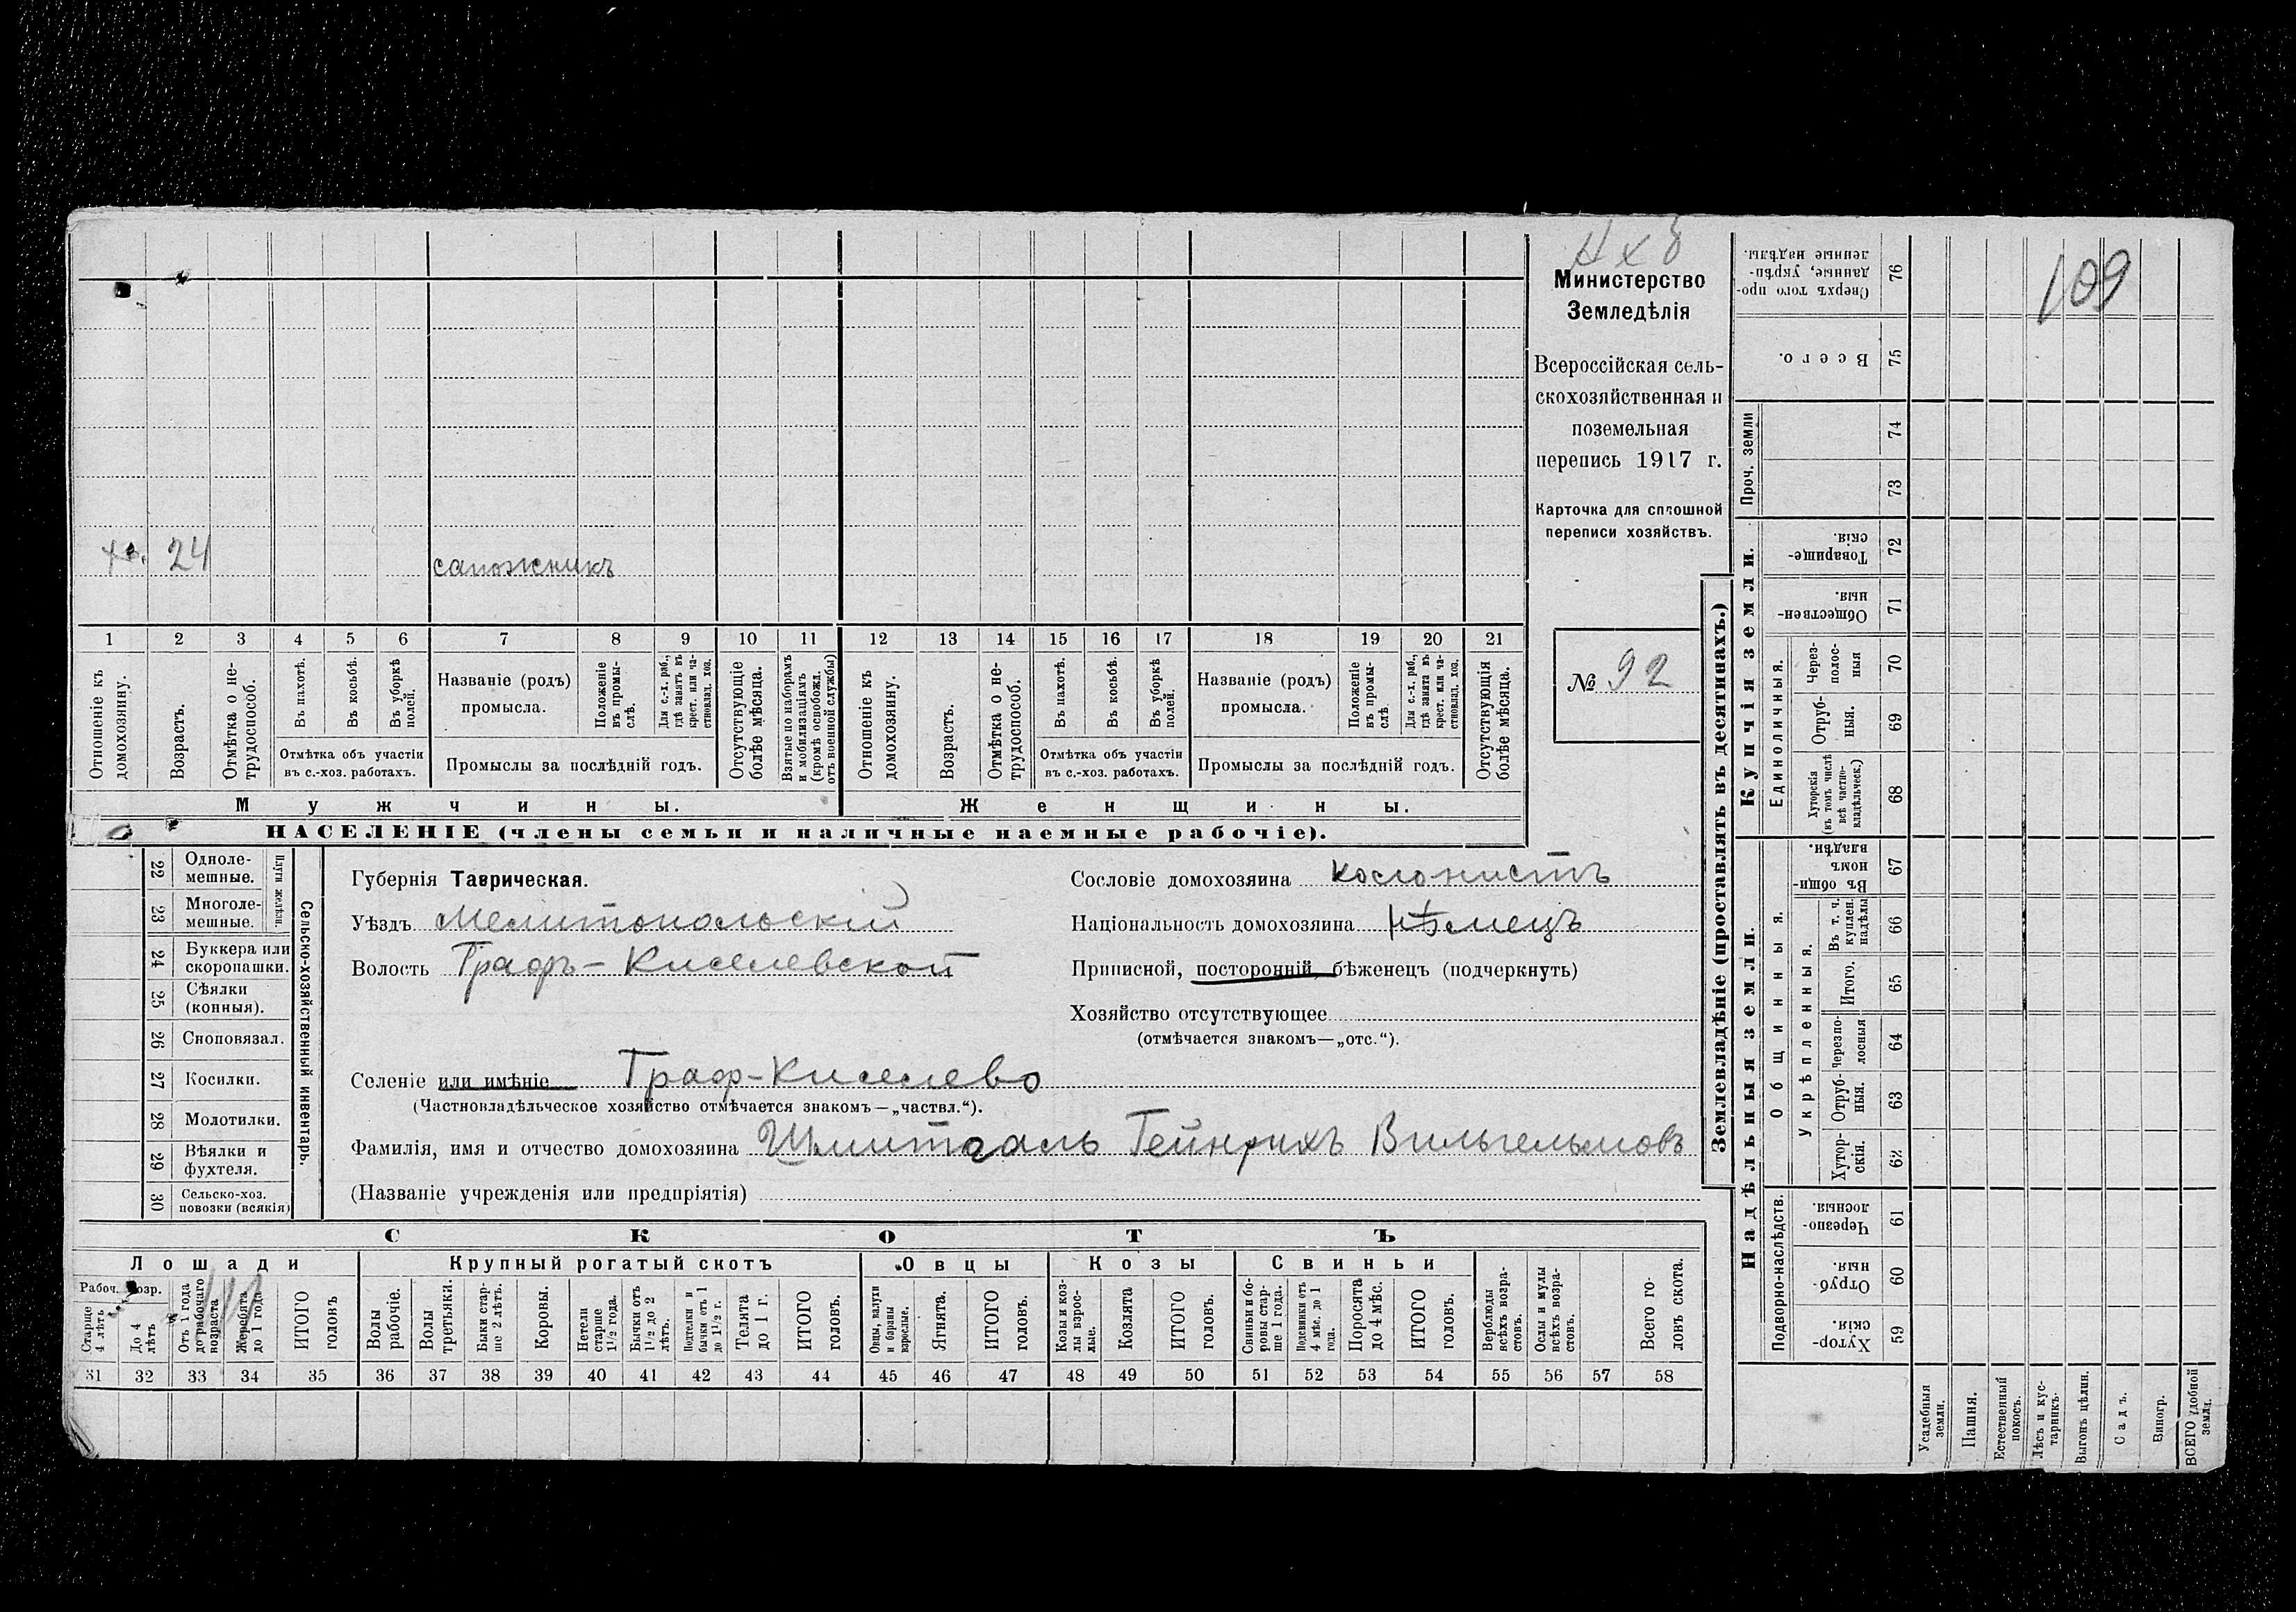 хо. 24 сапожникъ
1 2 3 4 5 6 7 8 9 10 11 12 13 14 15 16 17 18 19 20 21
Отношеніе къ домохозяину.
Возрастъ.
Отмѣтка о нетрудоспособ.
Въ пахотѣ.
Въ косьбѣ.
Въ уборкѣ полей.
Отмѣтка объ участіи
въ с.-хоз. работахъ.
Названіе (родъ)
промысла.
Положеніе въ промыслѣ.
Для с.-х. раб., гдѣ занятъ въ крест. или частновлад. хоз.
Промыслы за послѣдній годъ.
Отсутствующіе болѣе мѣсяца.
Взятые по наборамъ и мобилизаціямъ (кромѣ освобожд. отъ военной службы)
Отношеніе къ домохозяину.
Возрастъ.
Отмѣтка о нетрудоспособ.
Въ пахотѣ.
Въ косьбѣ.
Въ уборкѣ полей.
Отмѣтка объ участіи
въ с.-хоз. работахъ.
Названіе (родъ)
промысла.
Положеніе въ промыслѣ
Для с.-х. раб., гдѣ занята въ крест. или частновлад. хоз.
Промыслы за послѣдній годъ.
Отсутствующія болѣе мѣсяца.
Мужчины. Женщины.
НАСЕЛЕНІЕ (члены семьи и наличные наемные рабочіе).
Министерство
Земледѣлія
Всероссійская сель-
скохозяйственная и
поземельная
перепись 1917 г.
Карточка для сплошной
переписи хозяйствъ.
№ 92
22 Одноле-
мешные.
23 Многоле-
мешные.
Плуги желѣзн.
24 Буккера или
скоропашки.
25 Сѣялки
(конныя).
26 Сноповязал.
27 Косилки.
28 Молотилки.
29 Вѣялки и
фухтеля.
30 Сельско-хоз.
повозки (всякія)
Сельско-хозяйственный инвентарь.
Губернія Таврическая.
Уѣздъ Мелитопольскій
Волость Графъ-Киселевской
Селеніе или имѣніе Граф-Киселево
(Частновладѣльческое хозяйство отмѣчается знакомъ—„частвл.“).
Фамилія, имя и отчество домохозяина Шмитгаль Гейнрихъ Вильгельмовъ
(Названіе учрежденія или предпріятія)
Сословіе домохозяина колонистъ
Національность домохозяина нѣмецъ
Приписной, посторонній, бѣженецъ (подчеркнуть)
Хозяйство отсутствующее
(отмѣчается знакомъ—„отс.“).
СКОТЪ
Лошади Крупный рогатый скотъ Овцы Козы Свиньи
Рабоч. возр.
Старше 4 лѣтъ
До 4 лѣтъ
Отъ 1 года до рабочаго возраста
Жеребята до 1 года
ИТОГО головъ
Волы рабочіе.
Волы третьяки.
Быки старше 2 лѣтъ.
Коровы.
Нетели старше 1½ года.
Бычки отъ 1½ до 2 лѣтъ.
Подтелки и бычки отъ 1 до 1½ г.
Телята до 1 г.
ИТОГО головъ.
Овцы, валухи и бараны взрослые.
Ягнята.
ИТОГО головъ.
Козы и козлы взрослые.
Козлята
ИТОГО головъ.
Свиньи и боровы старше 1 года.
Подсвинки отъ 4 мѣс. до 1 года.
Поросята до 4 мѣс.
ИТОГО головъ.
Верблюды всѣхъ возрастовъ.
Ослы и мулы всѣхъ возрастовъ.
Всего головъ скота.
31 32 33 34 35 36 37 38 39 40 41 42 43 44 45 46 47 48 49 50 51 52 53 54 55 56 57 58
Землевладѣніе (проставлять въ десятинахъ.)
Купчія земли.
Проч. земли
Единоличныя.
Сверхъ того проданные, укрѣпленные надѣлы. 76
Всего. 75
74
73
Товарищескія. 72
Общественныя. 71
Черезполосныя 70
Отрубныя. 69
Хуторскія (въ томъ числѣ всѣ частновладѣльческ.) 68
Надѣльныя земли.
Общинныя.
Укрѣпленныя.
Въ общиномъ владѣн. 67
Въ т. ч. куплен. надѣлы 66
Итого. 65
Черезполосныя 64
Отрубныя. 63
Хуторскія. 62
Подворно-наслѣдств.
Черезполосныя. 61
Отрубныя. 60
Хуторскія. 59
Усадебныя земли.
Пашня.
Естественный покосъ.
Лѣсъ и кустарникъ.
Выгонъ цѣлин.
Садъ.
Виногр.
ВСЕГО удобной земли.
109